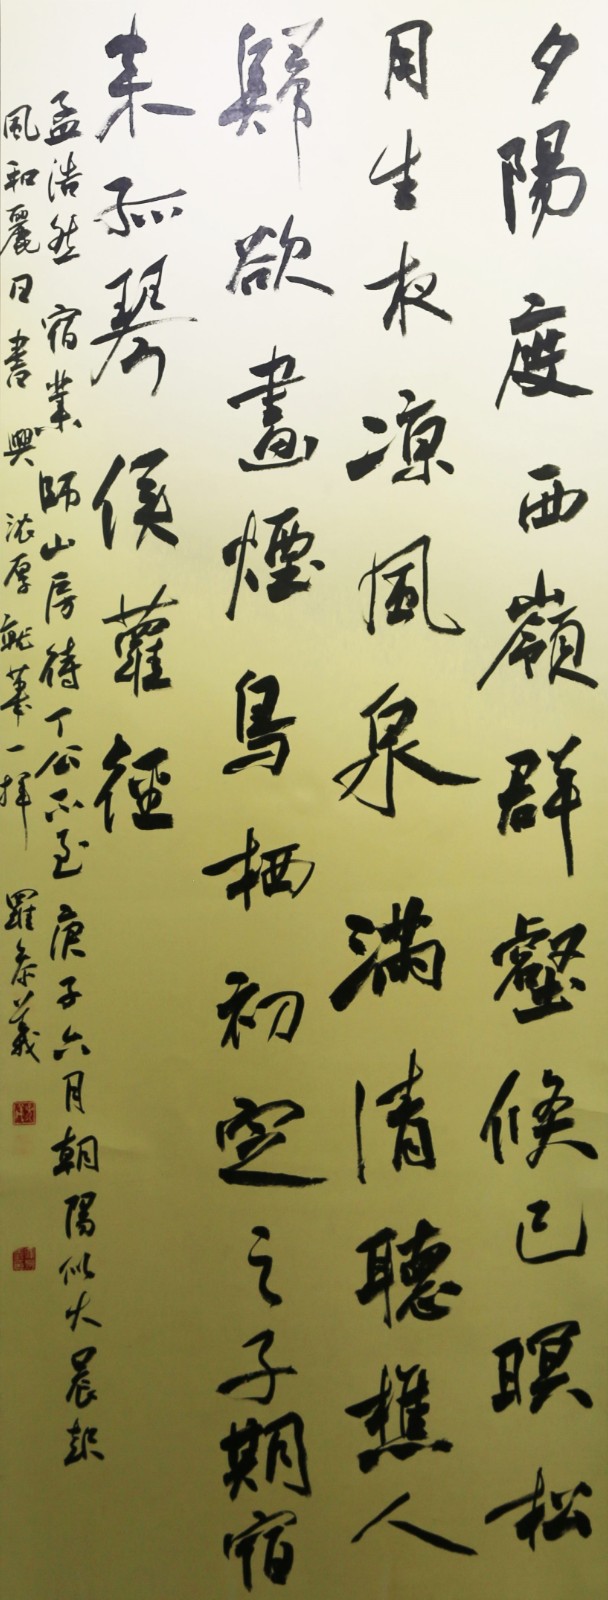 夕陽度西嶺群壑倏已暝松
月生夜凉風泉滿清聽樵人
歸欲盡煙鳥栖初定之子期宿
来孤琴候蘿徑
孟浩然 宿業師山房待丁公不至 庚子六月朝陽似火晨起
風和麗日書興浓厚就筆一揮 羅泰義